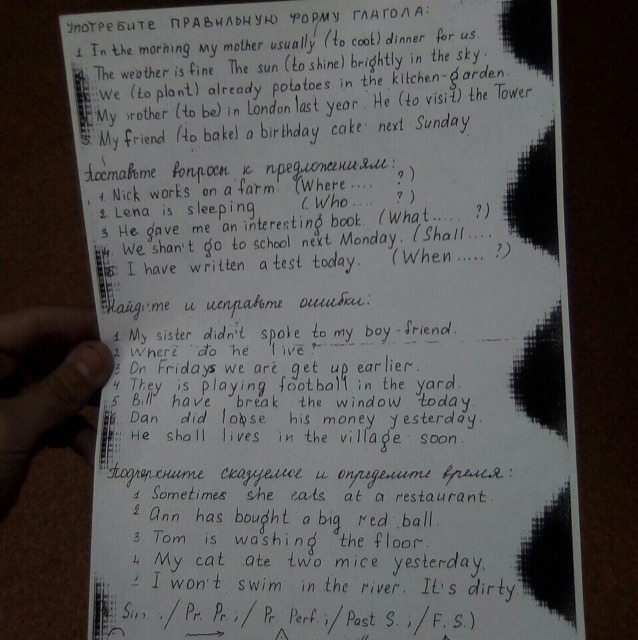 УПОТРЕБИТЕ ПРАВИЛЬНУЮ ФОРМУ ГЛАГОЛА:
1. In the morning my mother usually (to cook) dinner for us.
The weather is fine. The sun (to shine) brightly in the sky.
We (to plant) already potatoes in the kitchen-garden.
My brother (to be) in London last year. He (to visit) the Tower
5. My friend (to bake) a birthday cake next Sunday
Поставьте вопросы к предложениям:
1. Nick works on a farm. (Where .... ?)
2. Lena is sleeping (Who .... ?)
3. He gave me an interesting book. (What ..... ?)
4. We shan't go to school next Monday. (Shall ....
5. I have written a test today. (When ..... ?)
Найдите и исправьте ошибки:
1 My sister didn't spoke to my boy-friend.
2 Where do he live?
3 On Fridays we are get up earlier.
4. They is playing football in the yard.
5 Bill have break the window today.
6 Dan did loose his money yesterday.
He shall lives in the village soon.
Подчеркните сказуемое и определите время:
1 Sometimes she eats at a restaurant.
2 Ann has bought a big red ball.
3 Tom is washing the floor.
4 My cat ate two mice yesterday.
I won't swim in the river. It's dirty.
/ Pr. Pr. ; / Pr. Perf. ; / Past S. ; / F. S.)